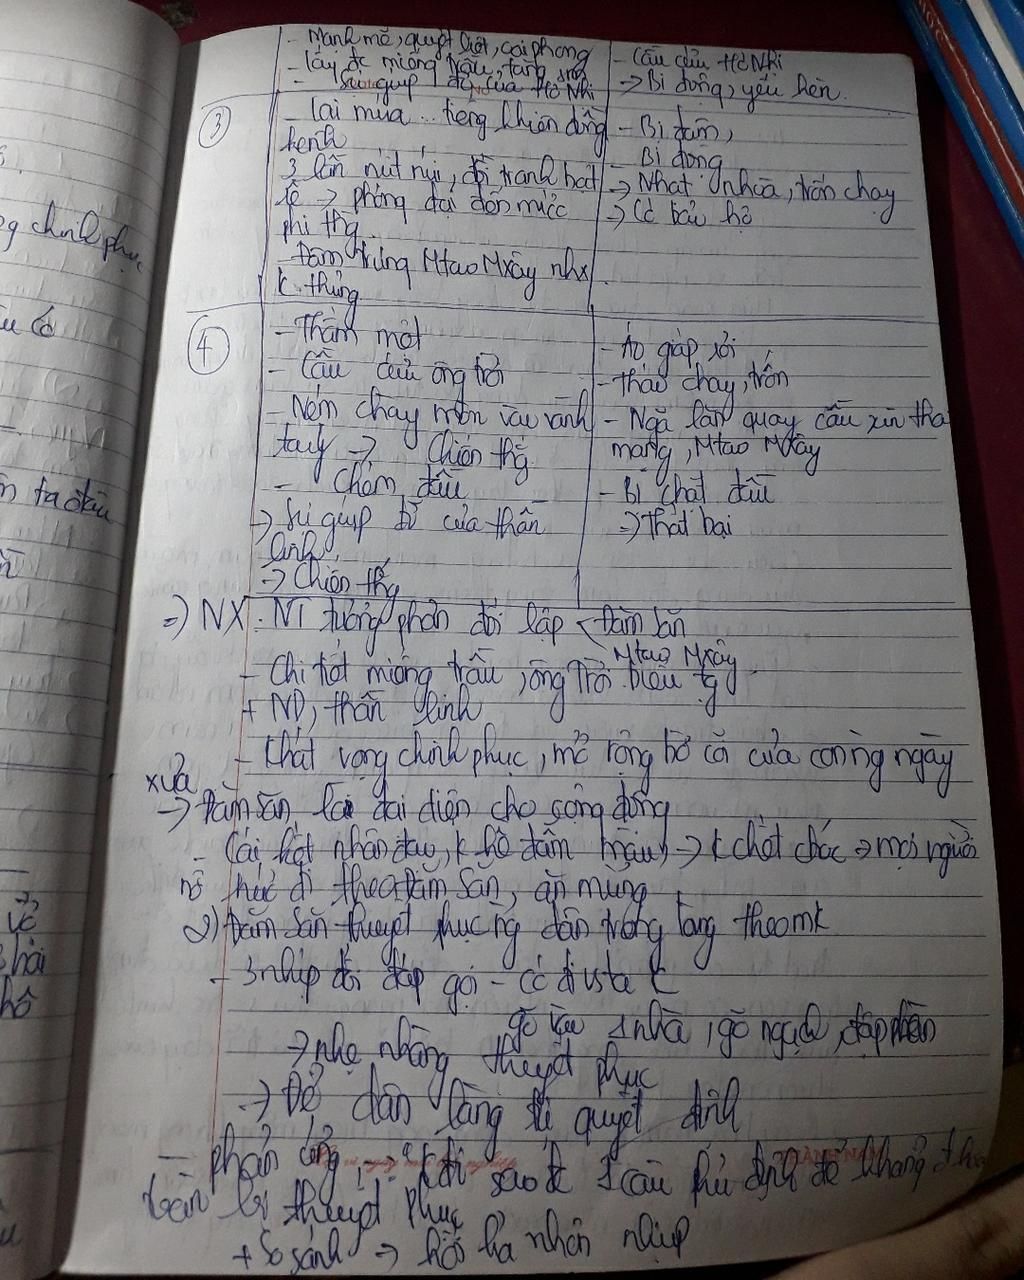 - Mạnh mẽ, quyết liệt, oai phong
- lấy đc miếng trầu, tăng
- Sự giúp đỡ của Hơ Nhị
- Cầu cứu Hơ Nhị
-> Bị động, yếu hèn.
③
- Lại múa... tiếng khiên đồng
kenh
3 lần núi, đồi tranh bật
rễ -> phóng đại đến mức
phi thg.
- Đâm trúng Mtao Mxây nhg
k thủng
- Bị đâm,
- Bị động
-> Nhát, trốn chạy
④
- Thấm mệt
- Cầu cứu ông trời
- Ném chày mòn vào vành
tay -> Chiến thg
- Chém đầu
-> Sự giúp đỡ của thần
linh.
-> Chiến thg
- Áo giáp rơi
- Tháo chạy, trốn
- Ngã lăn quay cầu xin tha
mạng, Mtao Mxây
- Bị chặt đầu
=> Thất bại
=> NX: NT tương phản đối lập < Đăm Săn
Mtao Mxây
- Chi tiết miếng trầu, ông Trời biểu tg
+ ND, thần linh
- Khát vọng chinh phục, mở rộng bờ cõi của con ng ngày
xưa
-> Đăm Săn đại diện cho cộng đồng
- Cái kết nhân đạo, k hề đẫm máu -> k chết chóc => mọi người
nô nức đi theo Đăm Săn, ăn mừng
2) Đăm Săn thuyết phục ng dân trong làng theo mk
- 3 nhịp đối đáp gọi - có đi vs ta k
gõ vào 1 nhà, gõ ngạch, đập phên
-> nhẹ nhàng thuyết phục
-> Để dân làng tự quyết định
1 câu phủ định để khẳng
bị thuyết phục
+ So sánh -> hối hả nhộn nhịp
chinh phục